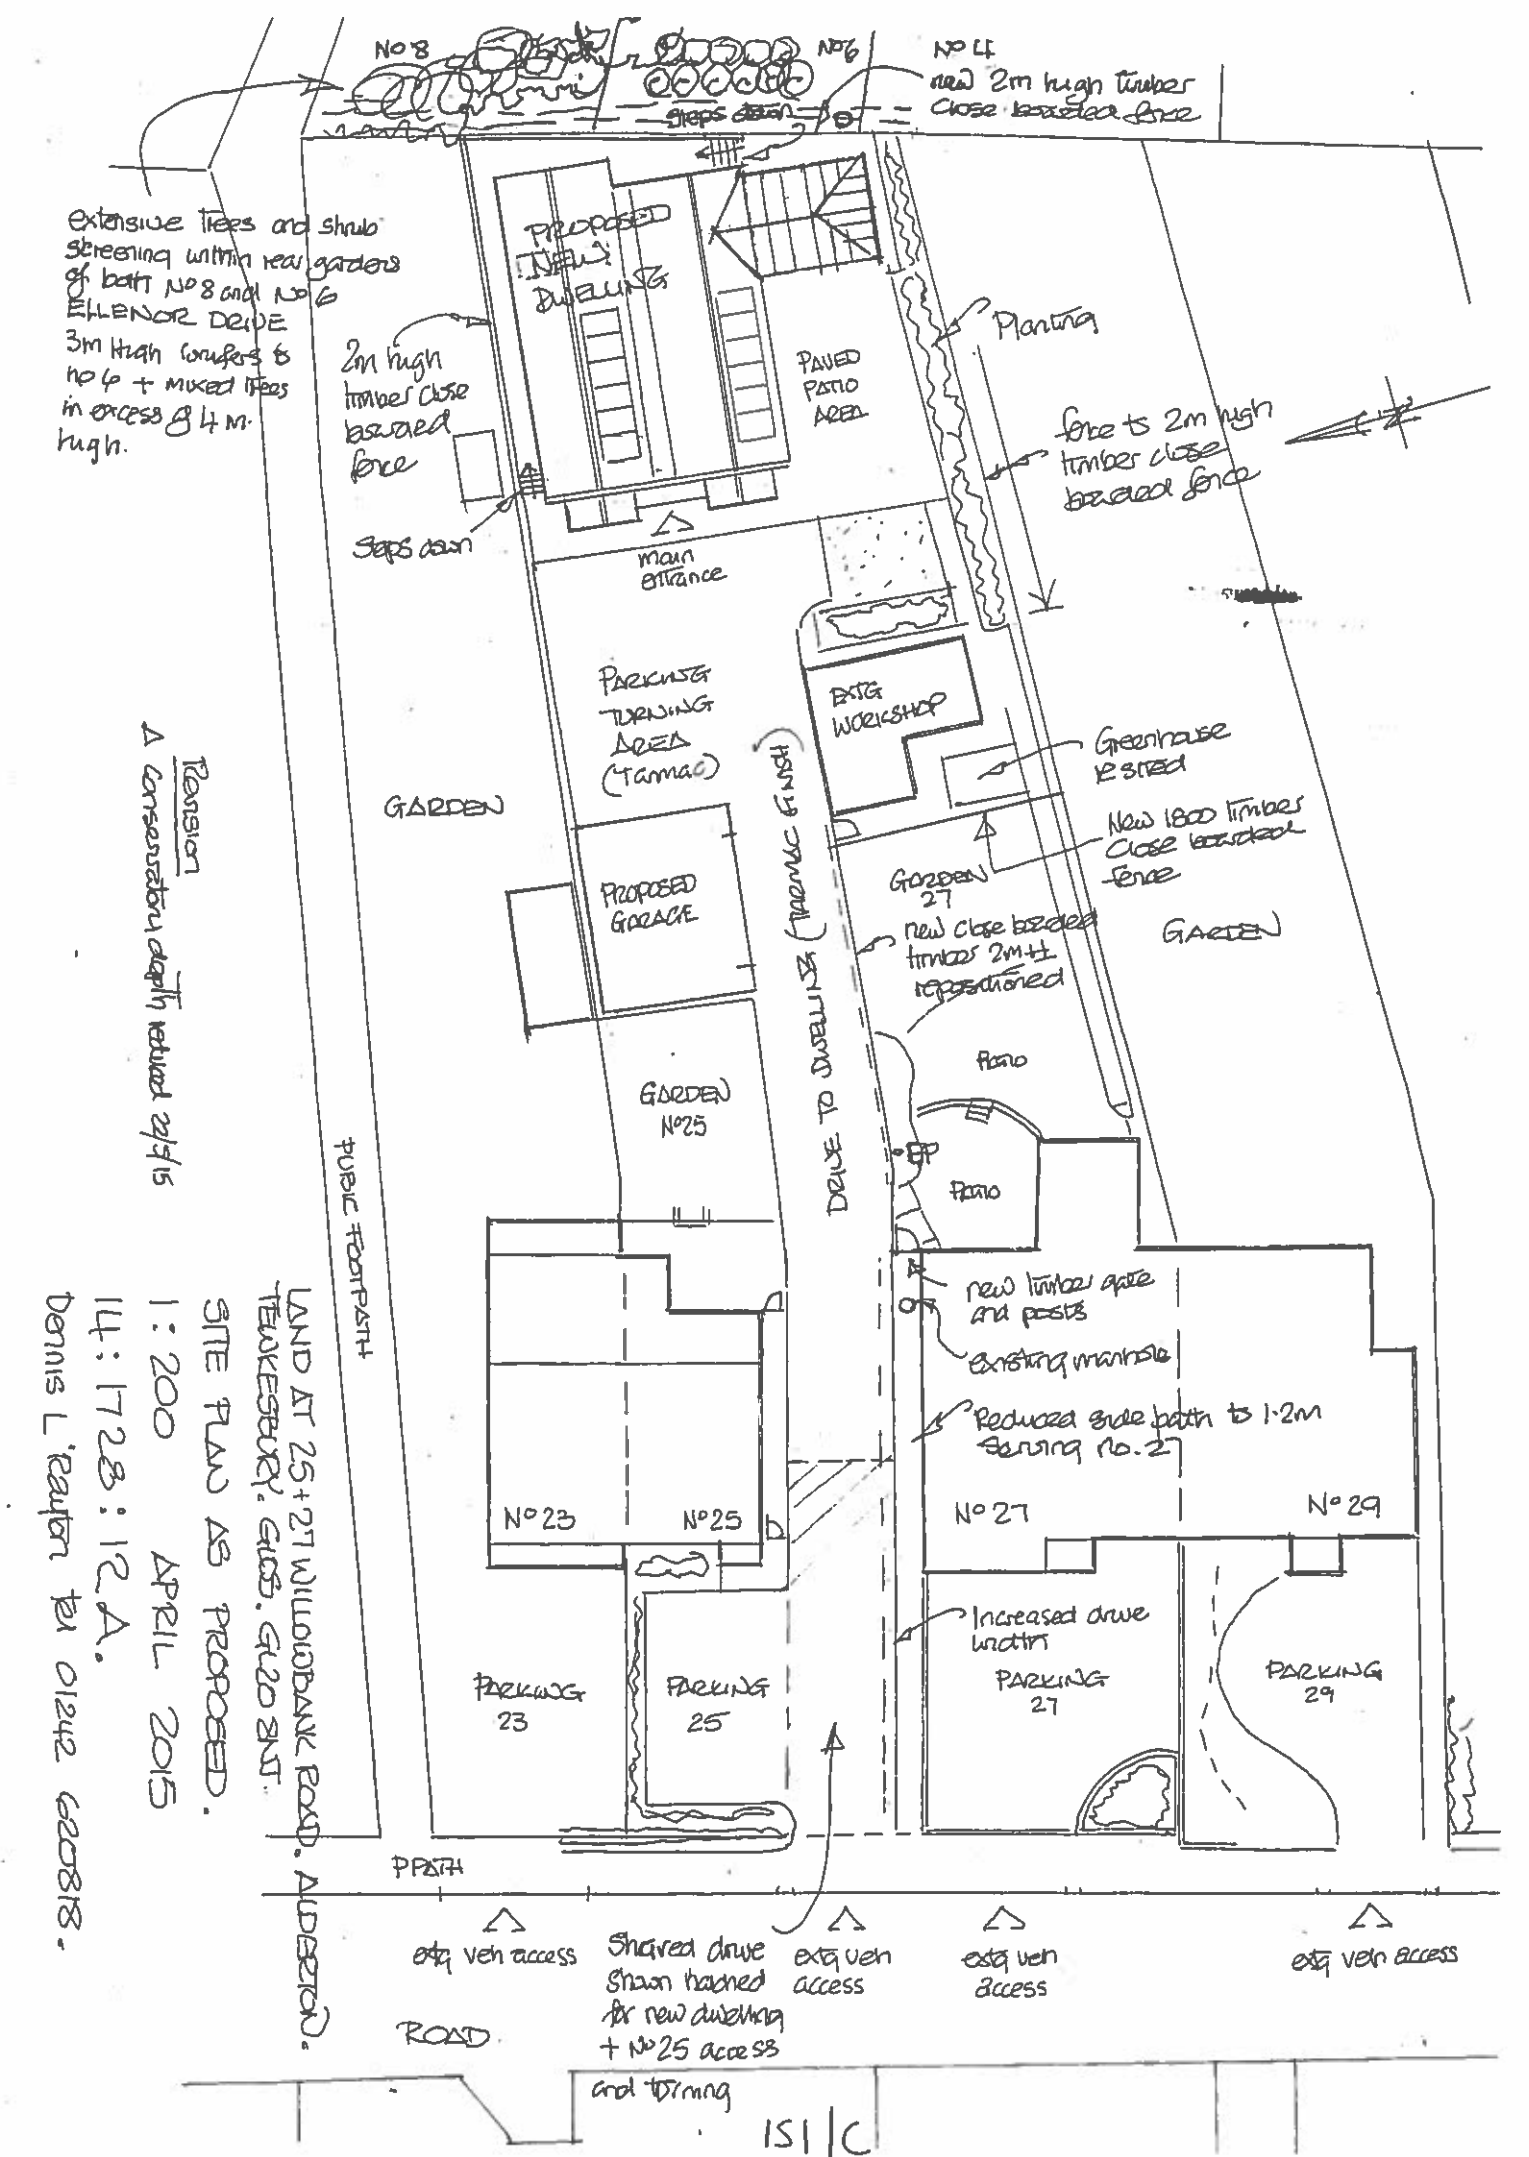 No 8
No 6
No 4
new 2m high timber
close boarded fence
steps down
extensive trees and shrub
screening within rear gardens
of both No 8 and No 6
ELLENOR DRIVE
3m high conifers to
no 6 + mixed trees
in excess of 4 m.
high.
PROPOSED
NEW
DWELLING
2m high
timber close
boarded
fence
PAVED
PATIO
AREA
Planting
fence to 2m high
timber close
boarded fence
N
steps down
main
entrance
PARKING
TURNING
AREA
(Tarmac)
EXTG
WORKSHOP
Greenhouse
resited
New 1800 timber
close boarded
fence
GARDEN
GARDEN
27
GARDEN
PROPOSED
GARAGE
new close boarded
timber 2m H
repositioned
DRIVE TO DWELLING (TARMAC FINISH)
Patio
GARDEN
No 25
EP
Patio
PUBLIC FOOTPATH
new timber gate
and posts
existing manhole
Reduced side path to 1.2m
serving no. 27
No 23
No 25
No 27
No 29
Increased drive
width
PARKING
23
PARKING
25
PARKING
27
PARKING
29
P PATH
extg veh access
Shared drive
shown hatched
for new dwelling
+ No 25 access
and turning
extg veh
access
extg veh
access
extg veh access
ROAD
Revision
A conservatory depth reduced 22/5/15
LAND AT 25+27 WILLOWBANK ROAD. ALDERTON.
TEWKESBURY. GLOS. GL20 8NT.
SITE PLAN AS PROPOSED.
1:200 APRIL 2015
14:1728:12A.
Dennis L Rayton Tel 01242 620818.
151/C